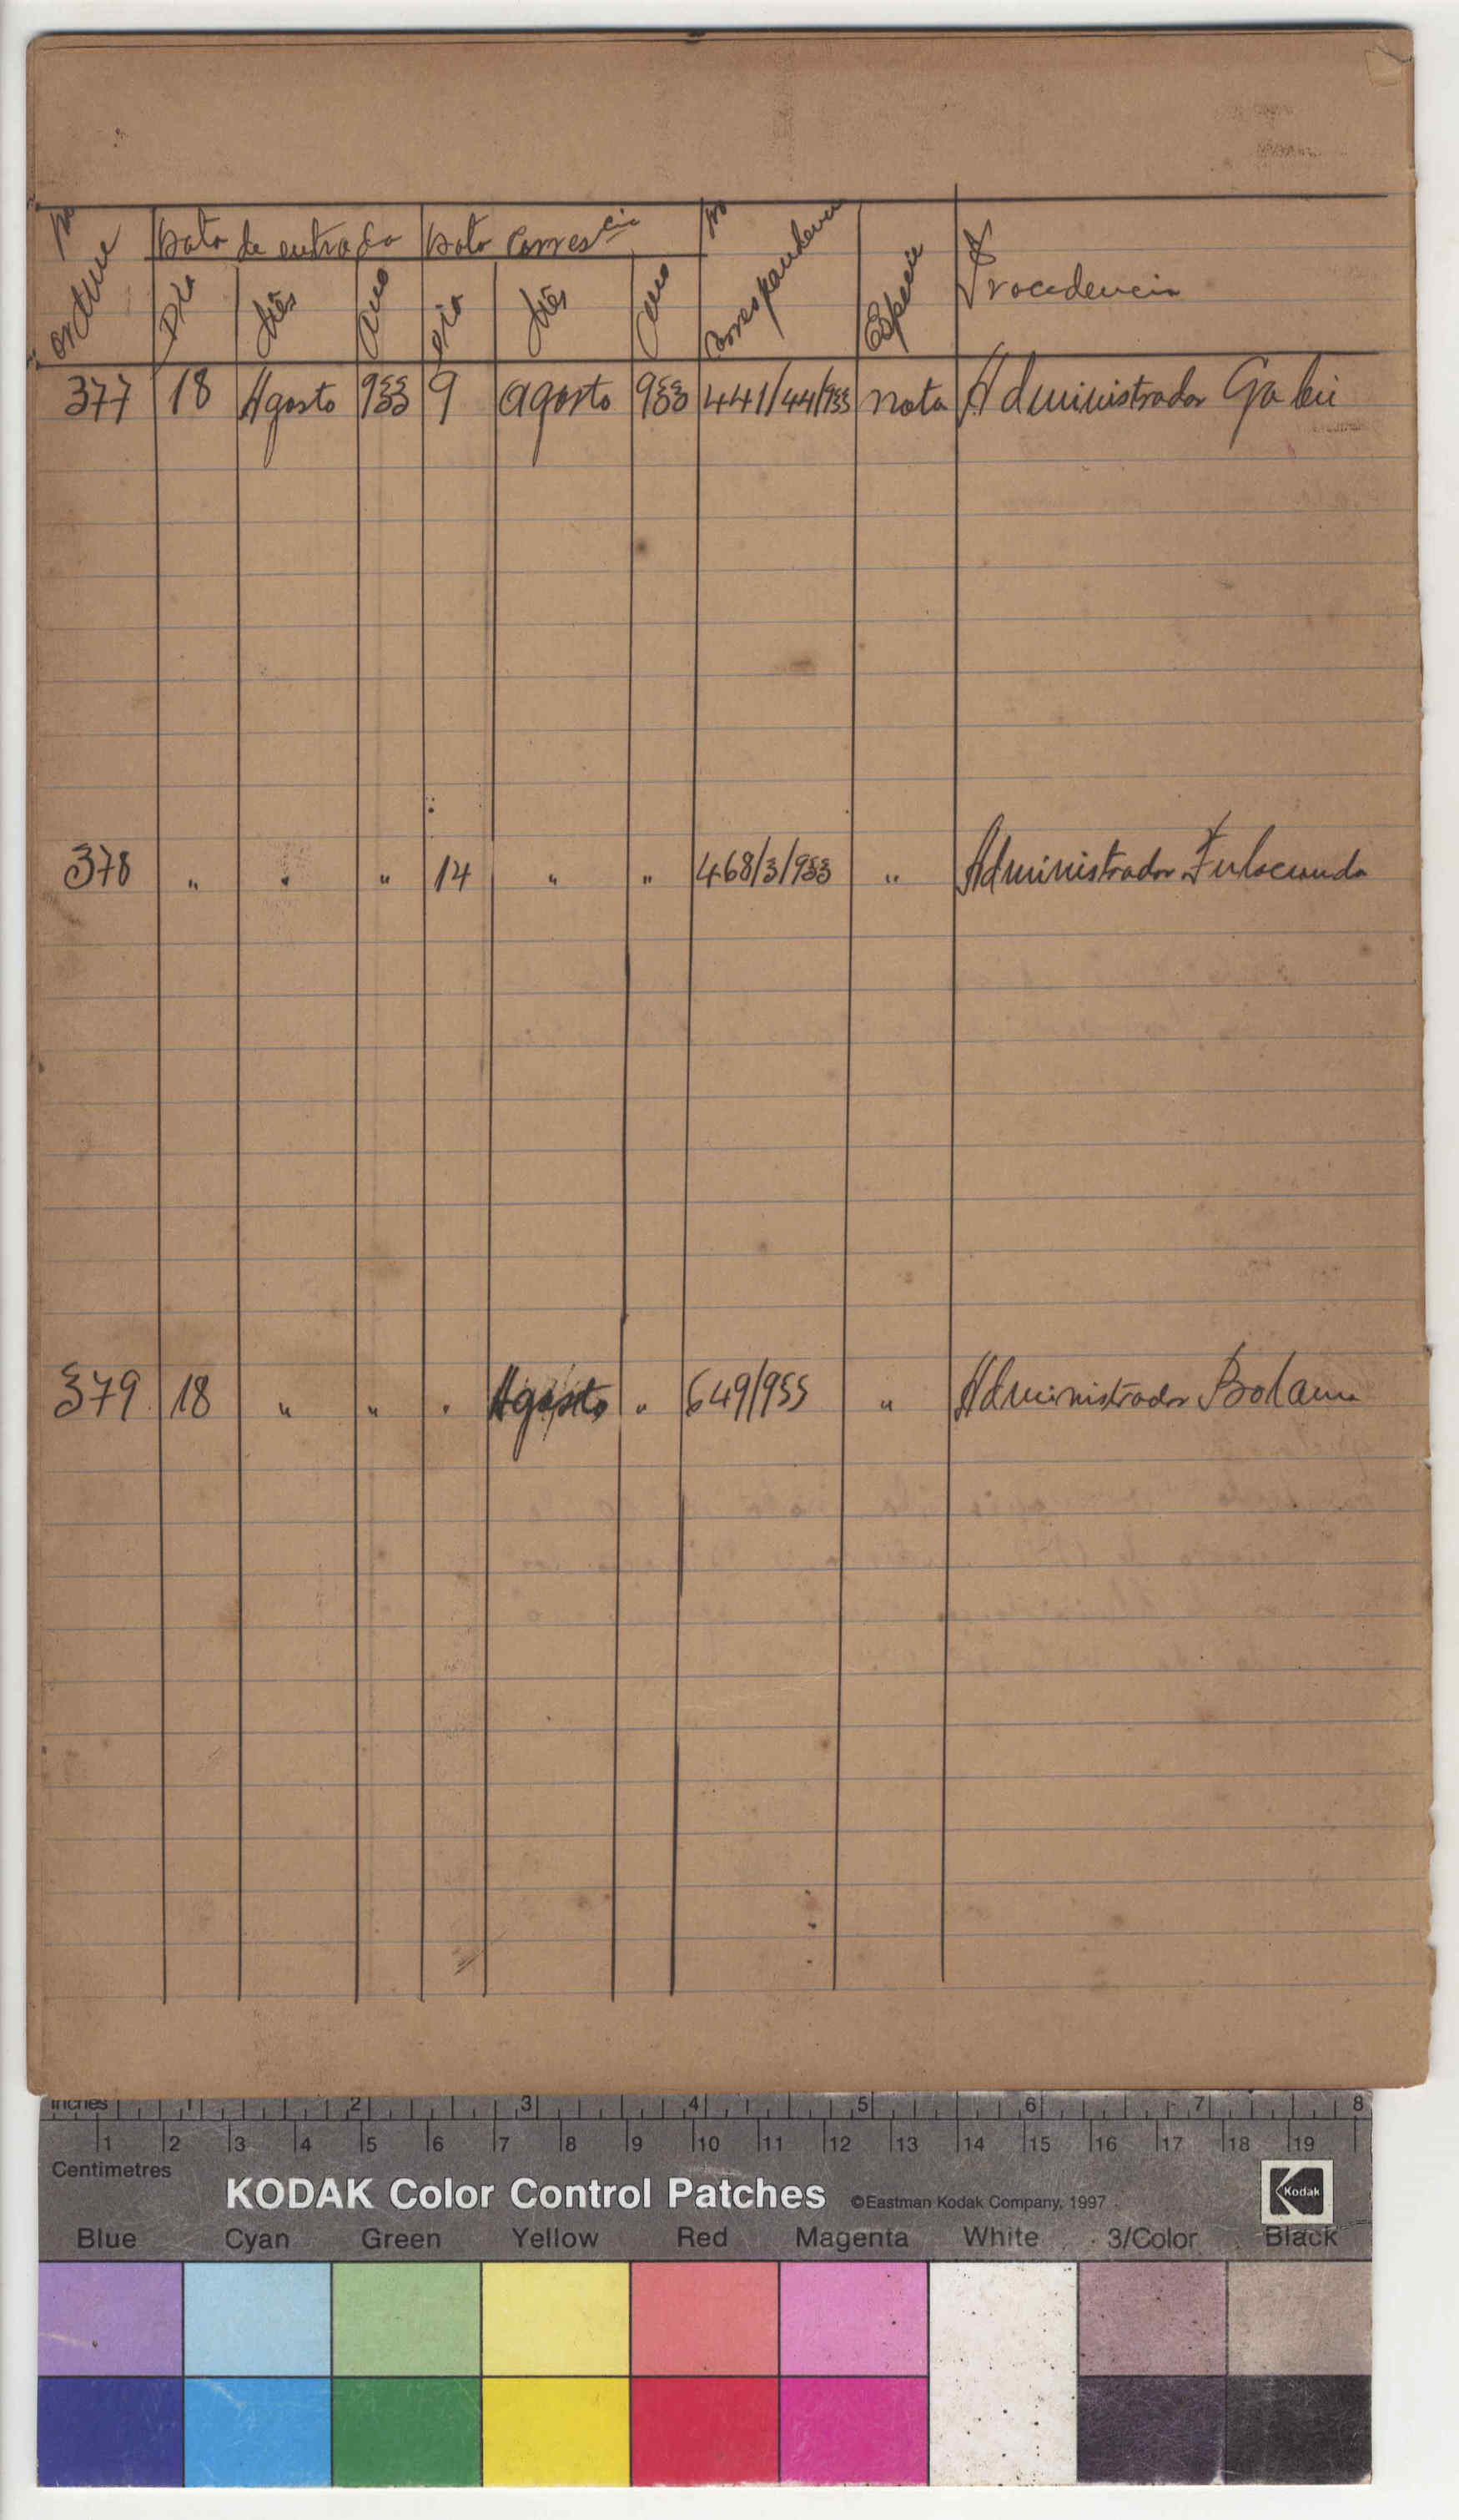 Nº ordem Data de entrada Data Corres.cia Nº Correspondencia Especie Procedencia
Dia Mês Ano Dia Mês Ano
377 18 Agosto 953 9 Agosto 953 441/44/953 nota Administrador Gabú
378 " " " 14 " " 468/3/953 " Administrador Fulacunda
379 18 " " " Agosto " 649/953 " Administrador Bolama
Inches 1 2 3 4 5 6 7 8
1 2 3 4 5 6 7 8 9 10 11 12 13 14 15 16 17 18 19
Centimetres
KODAK Color Control Patches ©Eastman Kodak Company, 1997 Kodak
Blue Cyan Green Yellow Red Magenta White 3/Color Black